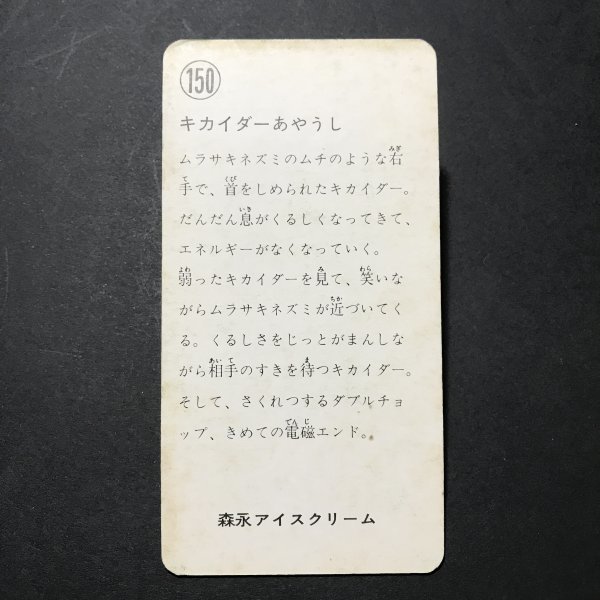 150
キカイダーあやうし
ムラサキネズミのムチのような右
手で、首をしめられたキカイダー。
だんだん息がくるしくなってきて、
エネルギーがなくなっていく。
弱ったキカイダーを見て、笑いな
がらムラサキネズミが近づいてく
る。くるしさをじっとがまんしな
がら相手のすきを待つキカイダー。
そして、さくれつするダブルチョ
ップ、きめての電磁エンド。
森永アイスクリーム